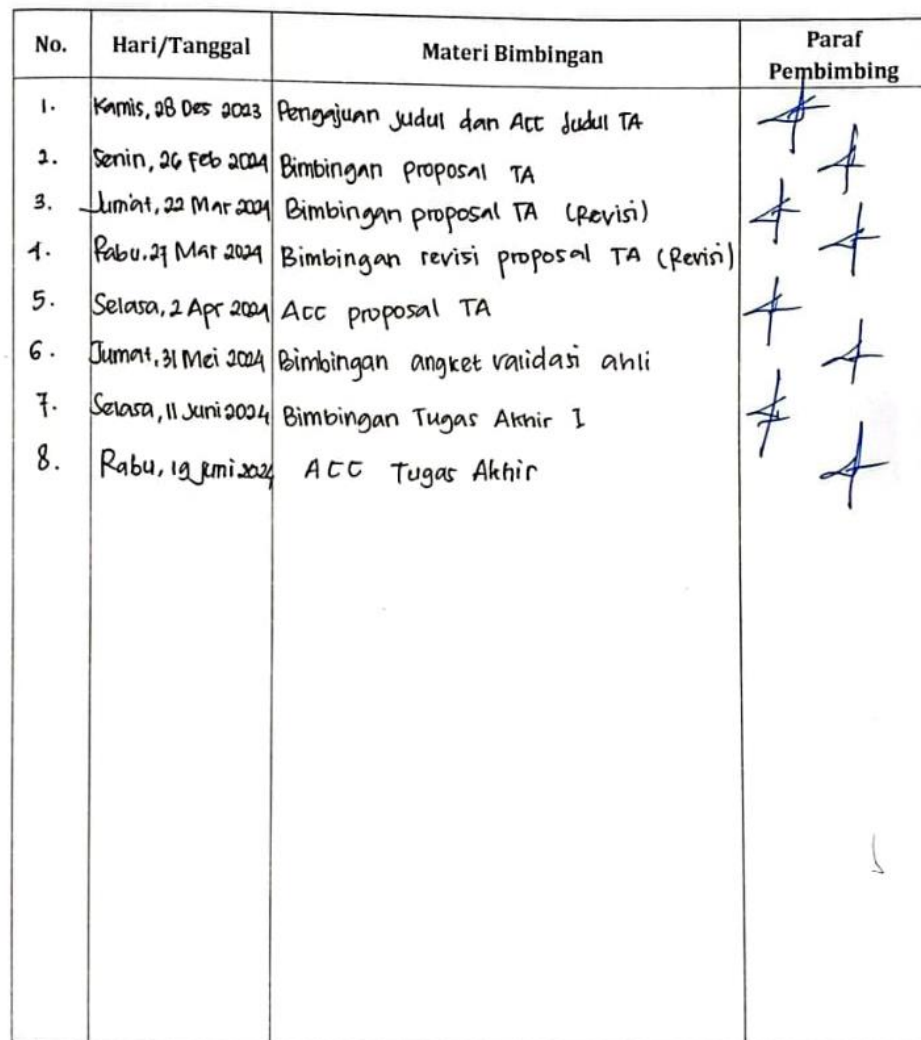 No. Hari/Tanggal Materi Bimbingan Paraf Pembimbing
1. Kamis, 28 Des 2023 Pengajuan Judul dan Acc Judul TA
2. Senin, 26 Feb 2024 Bimbingan proposal TA
3. Jumat, 22 Mar 2024 Bimbingan proposal TA (Revisi)
4. Rabu, 27 Mar 2024 Bimbingan revisi proposal TA (Revisi)
5. Selasa, 2 Apr 2024 Acc proposal TA
6. Jumat, 31 Mei 2024 Bimbingan angket validasi ahli
7. Selasa, 11 Juni 2024 Bimbingan Tugas Akhir I
8. Rabu, 19 Juni 2024 ACC Tugas Akhir